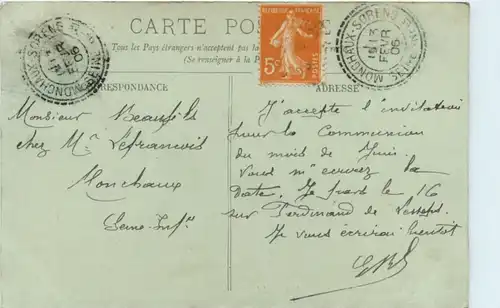 CARTE POS
Tous les Pays étrangers n'acceptent pas la
(Se renseigner à la P
RESPONDANCE
ADRESSE
REPUBLIQUE FRANÇAISE
5c
POSTES
MONCHAUX-SORENG
13
FEVR
06
SEINE
Monsieur Beaufils
chez Mr Lefrancois
Monchaux
Seine-Infre
J'accepte l'invitation
pour la Communion
du mois de Juin.
Vous m'
la
Date. Je pars le 16
sur Ferdinand de Lesseps.
Je vous écrirai bientôt